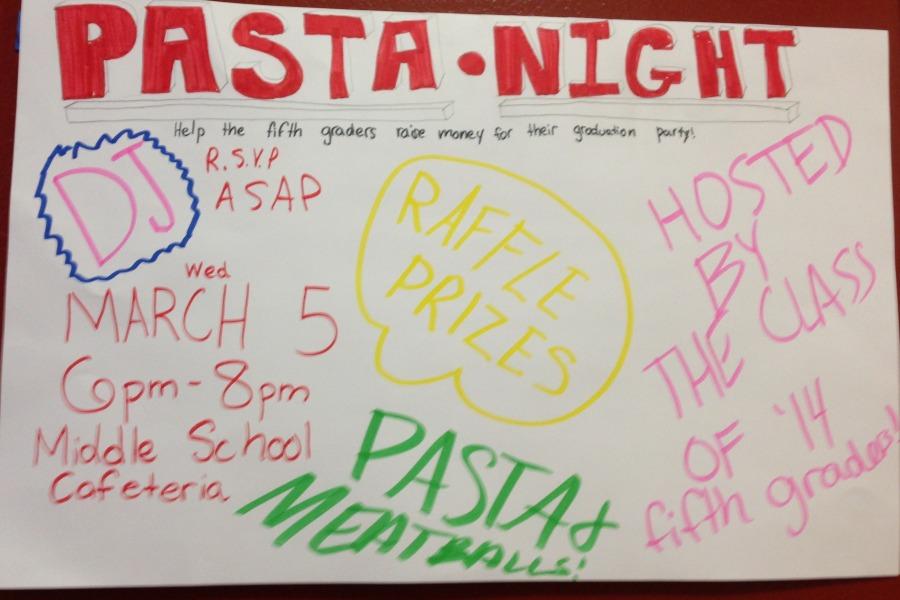 PASTA • NIGHT
Help the fifth graders raise money for their graduation party!
DJ
R.S.V.P
ASAP
Wed
MARCH 5
6pm - 8pm
Middle School
Cafeteria
RAFFLE
PRIZES
PASTA &
MEATBALLS!
HOSTED
BY
THE CLASS
OF '14
fifth graders!